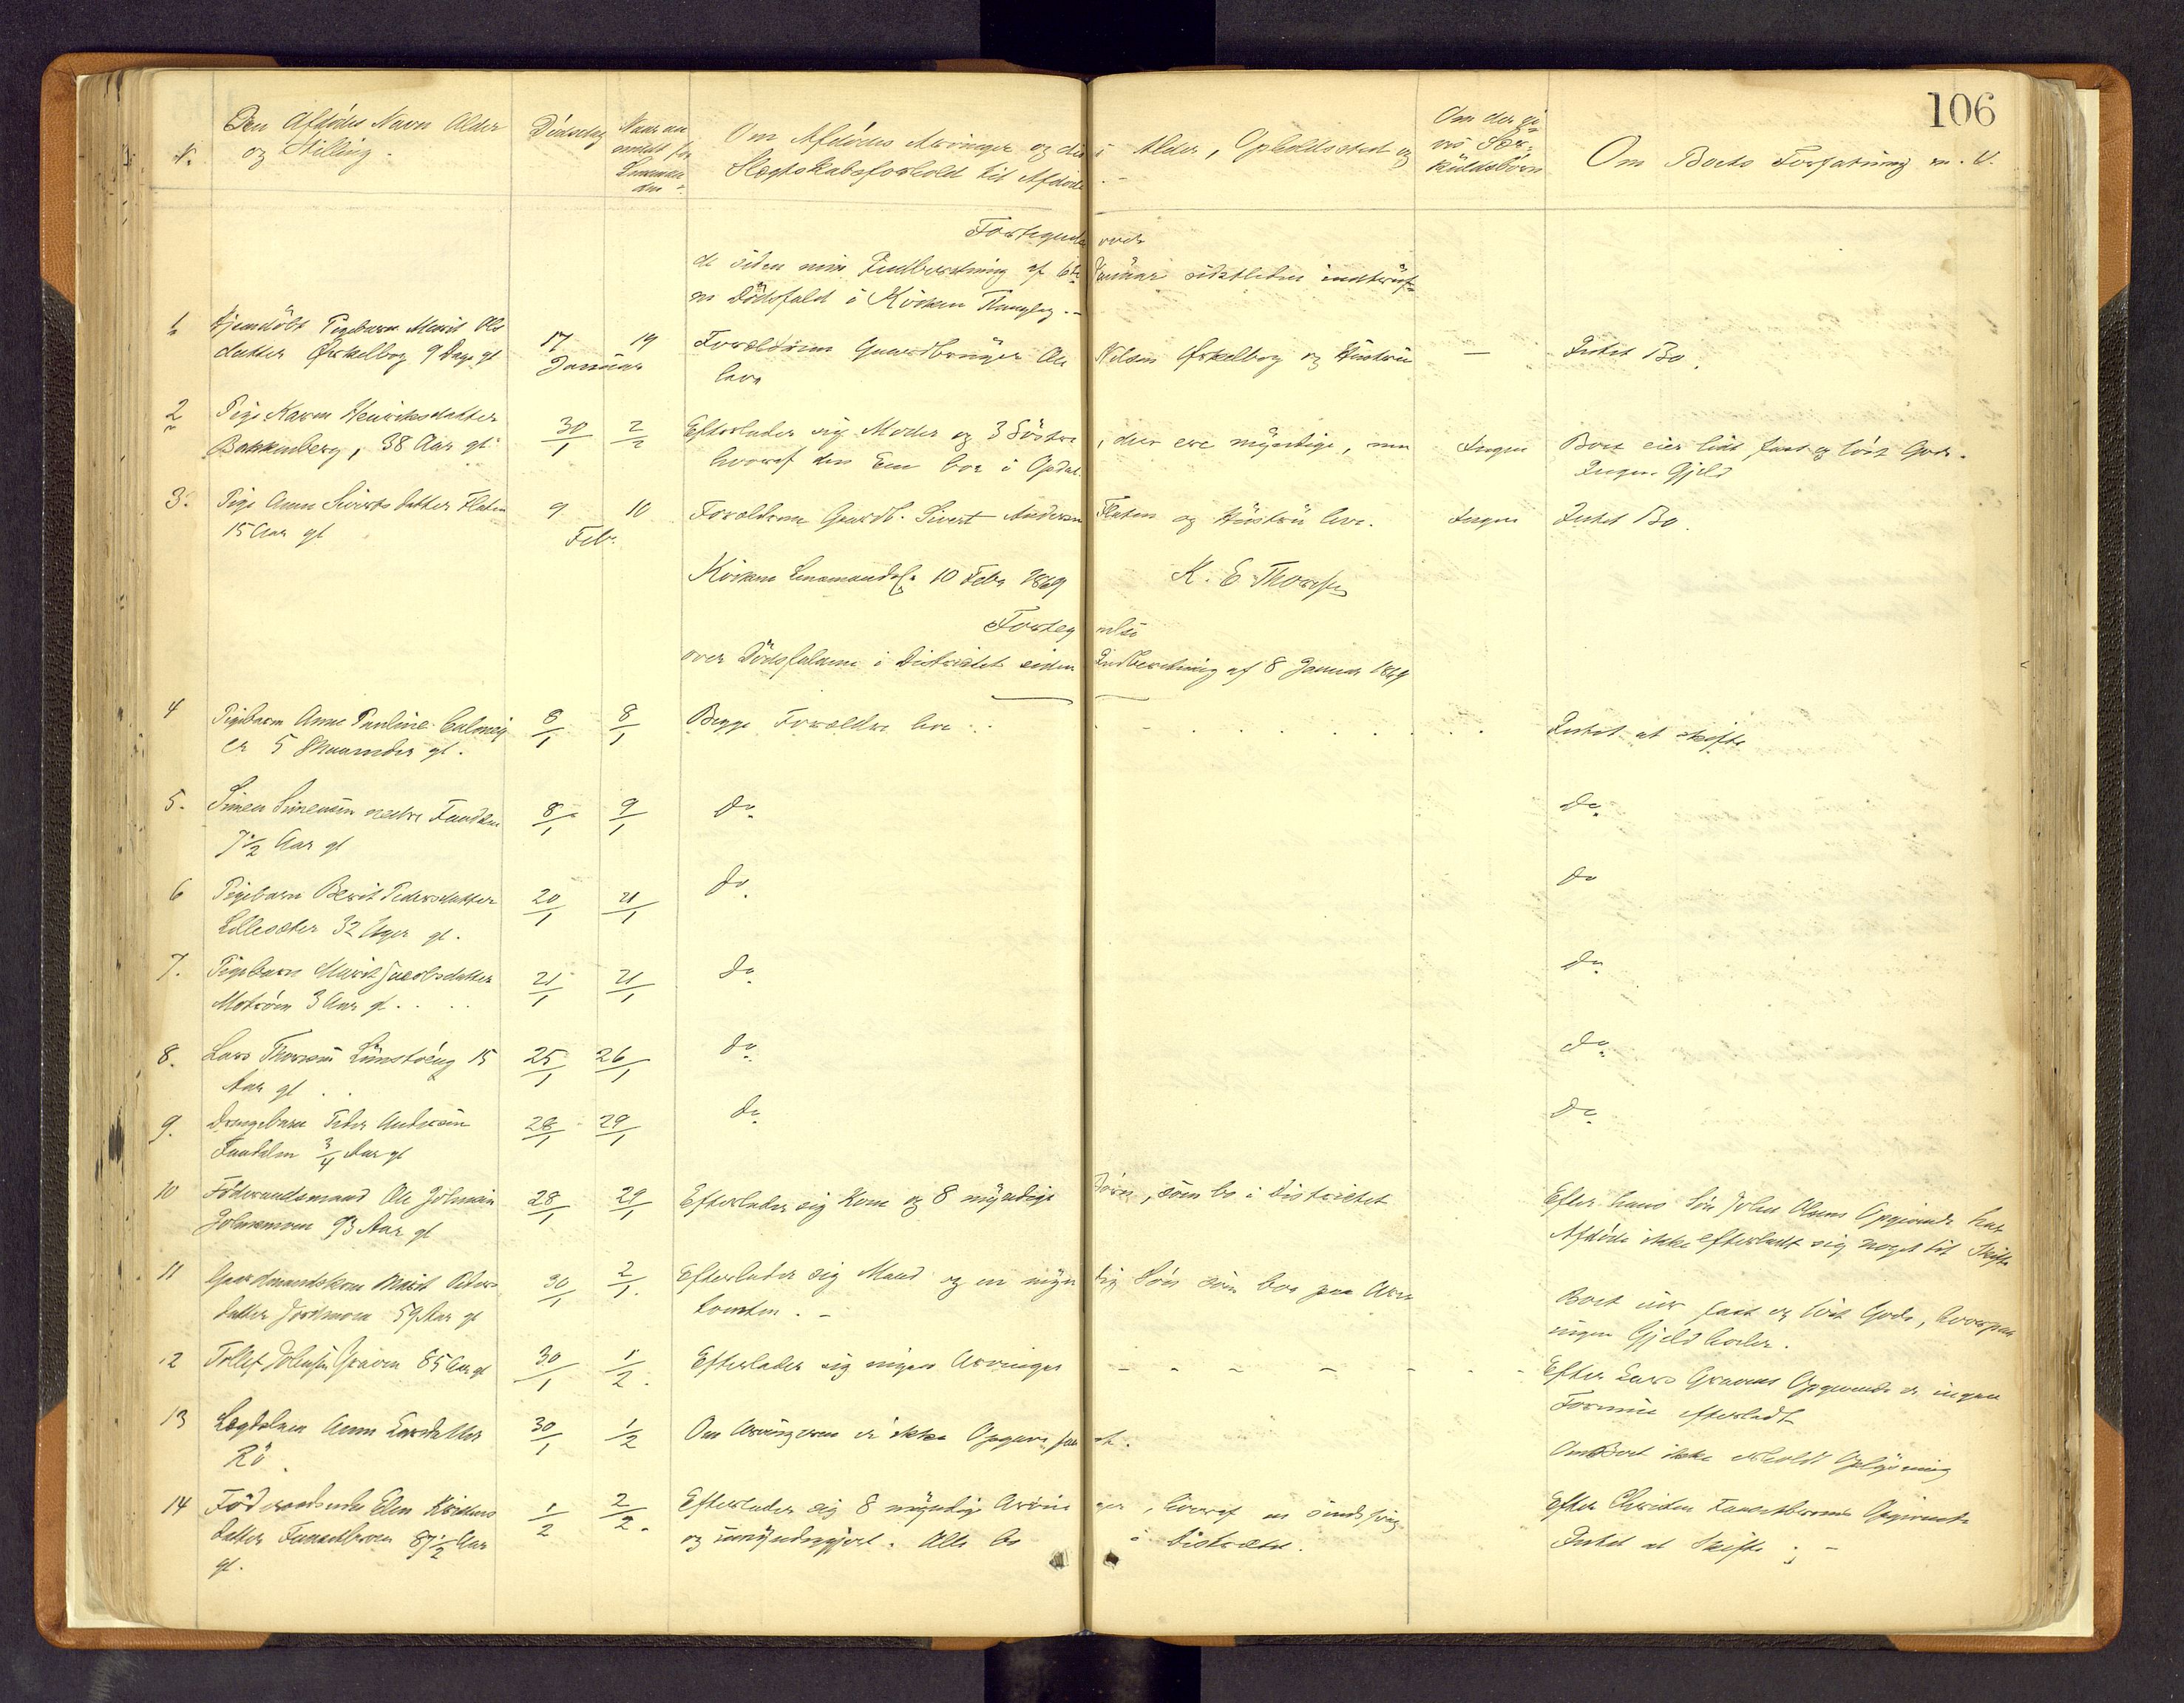 106
N. Den Afdødes Navn Alder Dødsdag Naar an Om Afdødes Arvinger og disses Alder, Opholdssted og Om der ei Om Boets Forfatning m. V.
og Stilling. meldt for Slægtskabsforhold til Afdøde.- vis Sær-
Lensman kuldsbørn
den
Fortegnelse over
de siden min Indberetning af 6te Januar sidstleden indtruf-
ne Dödsfald i Kvikne Thinglag.-
1 Hjemdöbt Pigebarn Marit Ols 17 19 Forældrene Gaardbruger Ole Nilsen Ørkelbog og Hüstrü — Intet Bo.
datter Ørkelbog 9 Dage gl Januar leve
2 Pige Karen Henriksdatter 30/1 2/2 Efterlader sig Moder og 3 Söstre, der ere myndige, men Ingen Boet eier lidt fast og löst Gods.
Bakkenberg, 38 Aar gl. hvoraf den Ene bor i Opdal. Ingen Gjeld
3. Pige Anne Sivertsdatter Flaten 9 10 Forældrene Gaardb. Sivert Andersen Flaten og Hüstrü leve. Ingen Intet Bo.
15 Aar gl Feb.
Kvikne Lensmandsf. 10 Febr 1869 K. E. Thoresen
Fortegnelse
over Dödsfaldene i Distriktet siden Indberetning af 8 Januar 1869
4 Pigebarn Anne Pauline 8/1 8/1 Begge Forældre leve . . Intet at skifte
er 5 Maaneder gl.
5. Simen Simensen nedre Fundalen 8/1 9/1 Do. Do.
7 1/2 Aar gl
6 Pigebarn Berit Pedersdatter 20/1 21/1 Do. Do
Lillesæter 32 Uger gl.
7. Pigebarn Marit Jacobsdatter 21/1 21/1 Do. Do.
3 Aar gl. . . .
8. Lars 15 25/1 26/1 Do. Do.
Aar gl . .
9. Drengebarn Peder Andersen 28/1 29/1 Do. Do.
3/4 Aar gl
10 Föderaadsmand Ole Johnsen 28/1 29/1 Efterlader sig Kone og 8 myndige Börn, som bo i Distriktet Efter hans Sön John Olsens Opgivende har
93 Aar gl Afdöde ikke efterladt sig noget til Skifte
11 Gaardmandskone Marit Peders 30/1 2/1. Efterlader sig Mand og en myndig Sön som bor paa Boet eier fast og löst Gods, hvorpaa
datter 59 Aar gl ingen Gjeld hviler.
12 Tollef Johnsen Graven 85 Aar gl 30/1 1/2. Efterlader sig ingen Arvinger - - - - - - Efter Lars Gravens Opgivende er ingen
Formue efterladt
13 Lægdslem Anne Larsdatter 30/1 1/2 Om Arvingerne er ikke Opgave faaet. Om Boet ikke erholdt Oplysning
Rö.
14 Föderaadsenke Elen 1/2 2/2. Efterlader sig 8 myndige Arvinger, hvoraf en sindssvag Efter Christen Opgivende
datter 87 1/2 Aar og umyndiggjort. Alle bo i Distriktet. Intet at Skifte ; -
gl.